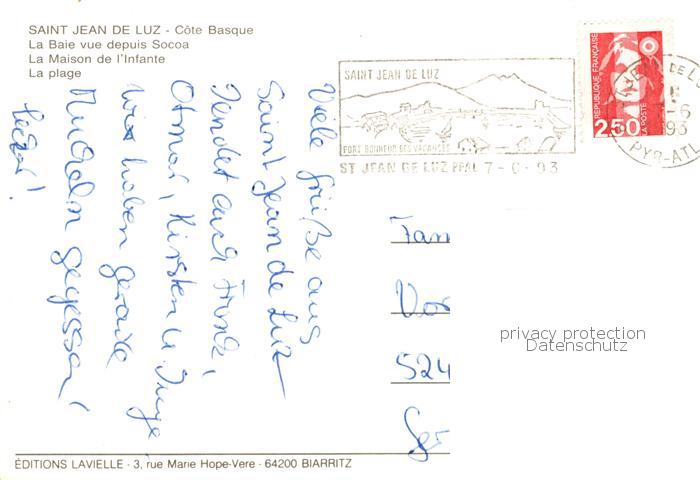 SAINT JEAN DE LUZ - Côte Basque
La Baie vue depuis Socoa
La Maison de l'Infante
La plage
SAINT JEAN DE LUZ
PORT BONHEUR DES VACANCES
ST JEAN DE LUZ PPAL 7-6-93
RÉPUBLIQUE FRANÇAISE
2,50
LA POSTE
DE L
-6
93
PYR-ATL
Viele Grüße aus
Saint Jean de Luz
sendet euch
Otmar, Kirsten u. Inge
wir haben gerade
Muscheln gegessen,
lecker!
Fam
Vor
524
privacy protection
Datenschutz
ÉDITIONS LAVIELLE - 3, rue Marie Hope-Vere - 64200 BIARRITZ